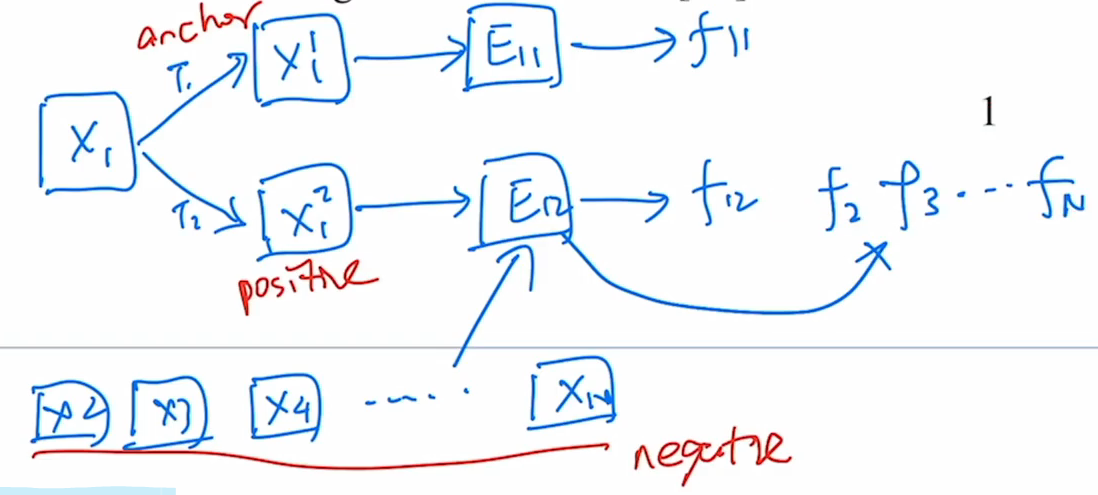 anchor
T₁ X₁¹ E₁₁ f₁₁
X₁ 1
T₂ X₁² E₁₂ f₁₂ f₂ f₃ ... fN
positive
X2 X3 X4 ...... XN
negative